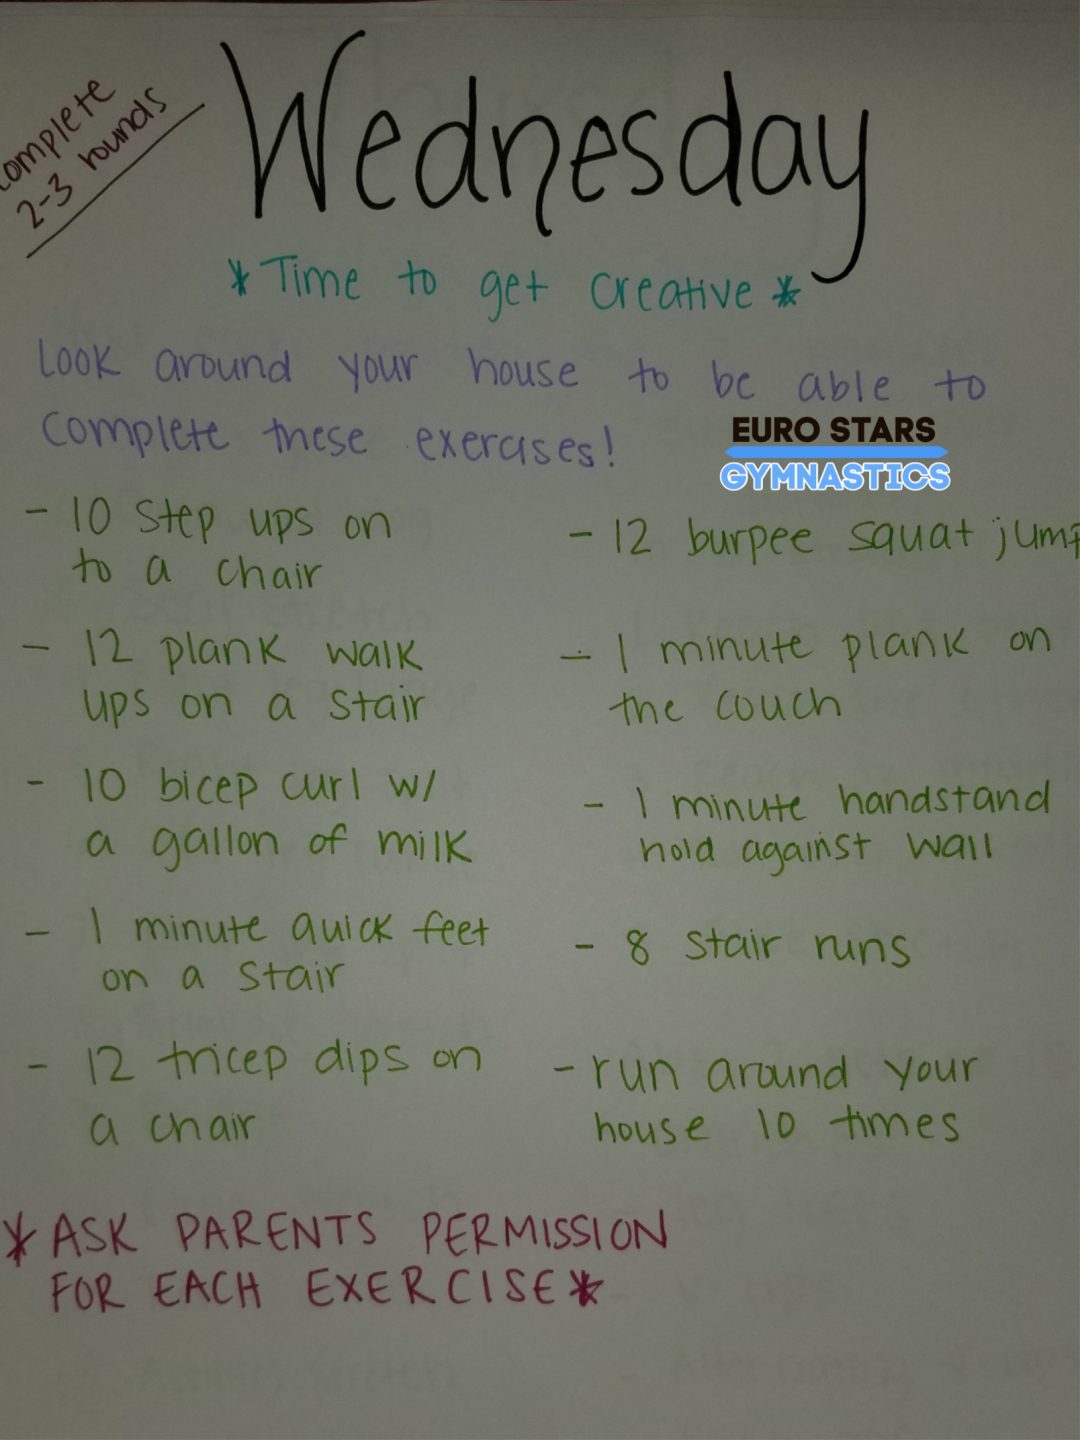 Complete
2-3 rounds
Wednesday
*Time to get creative*
Look around your house to be able to
complete these exercises!
EURO STARS
GYMNASTICS
- 10 step ups on
to a chair
- 12 plank walk
ups on a stair
- 10 bicep curl w/
a gallon of milk
- 1 minute quick feet
on a stair
- 12 tricep dips on
a chair
- 12 burpee squat jump
- 1 minute plank on
the couch
- 1 minute handstand
hold against wall
- 8 stair runs
- run around your
house 10 times
*ASK PARENTS PERMISSION
FOR EACH EXERCISE*